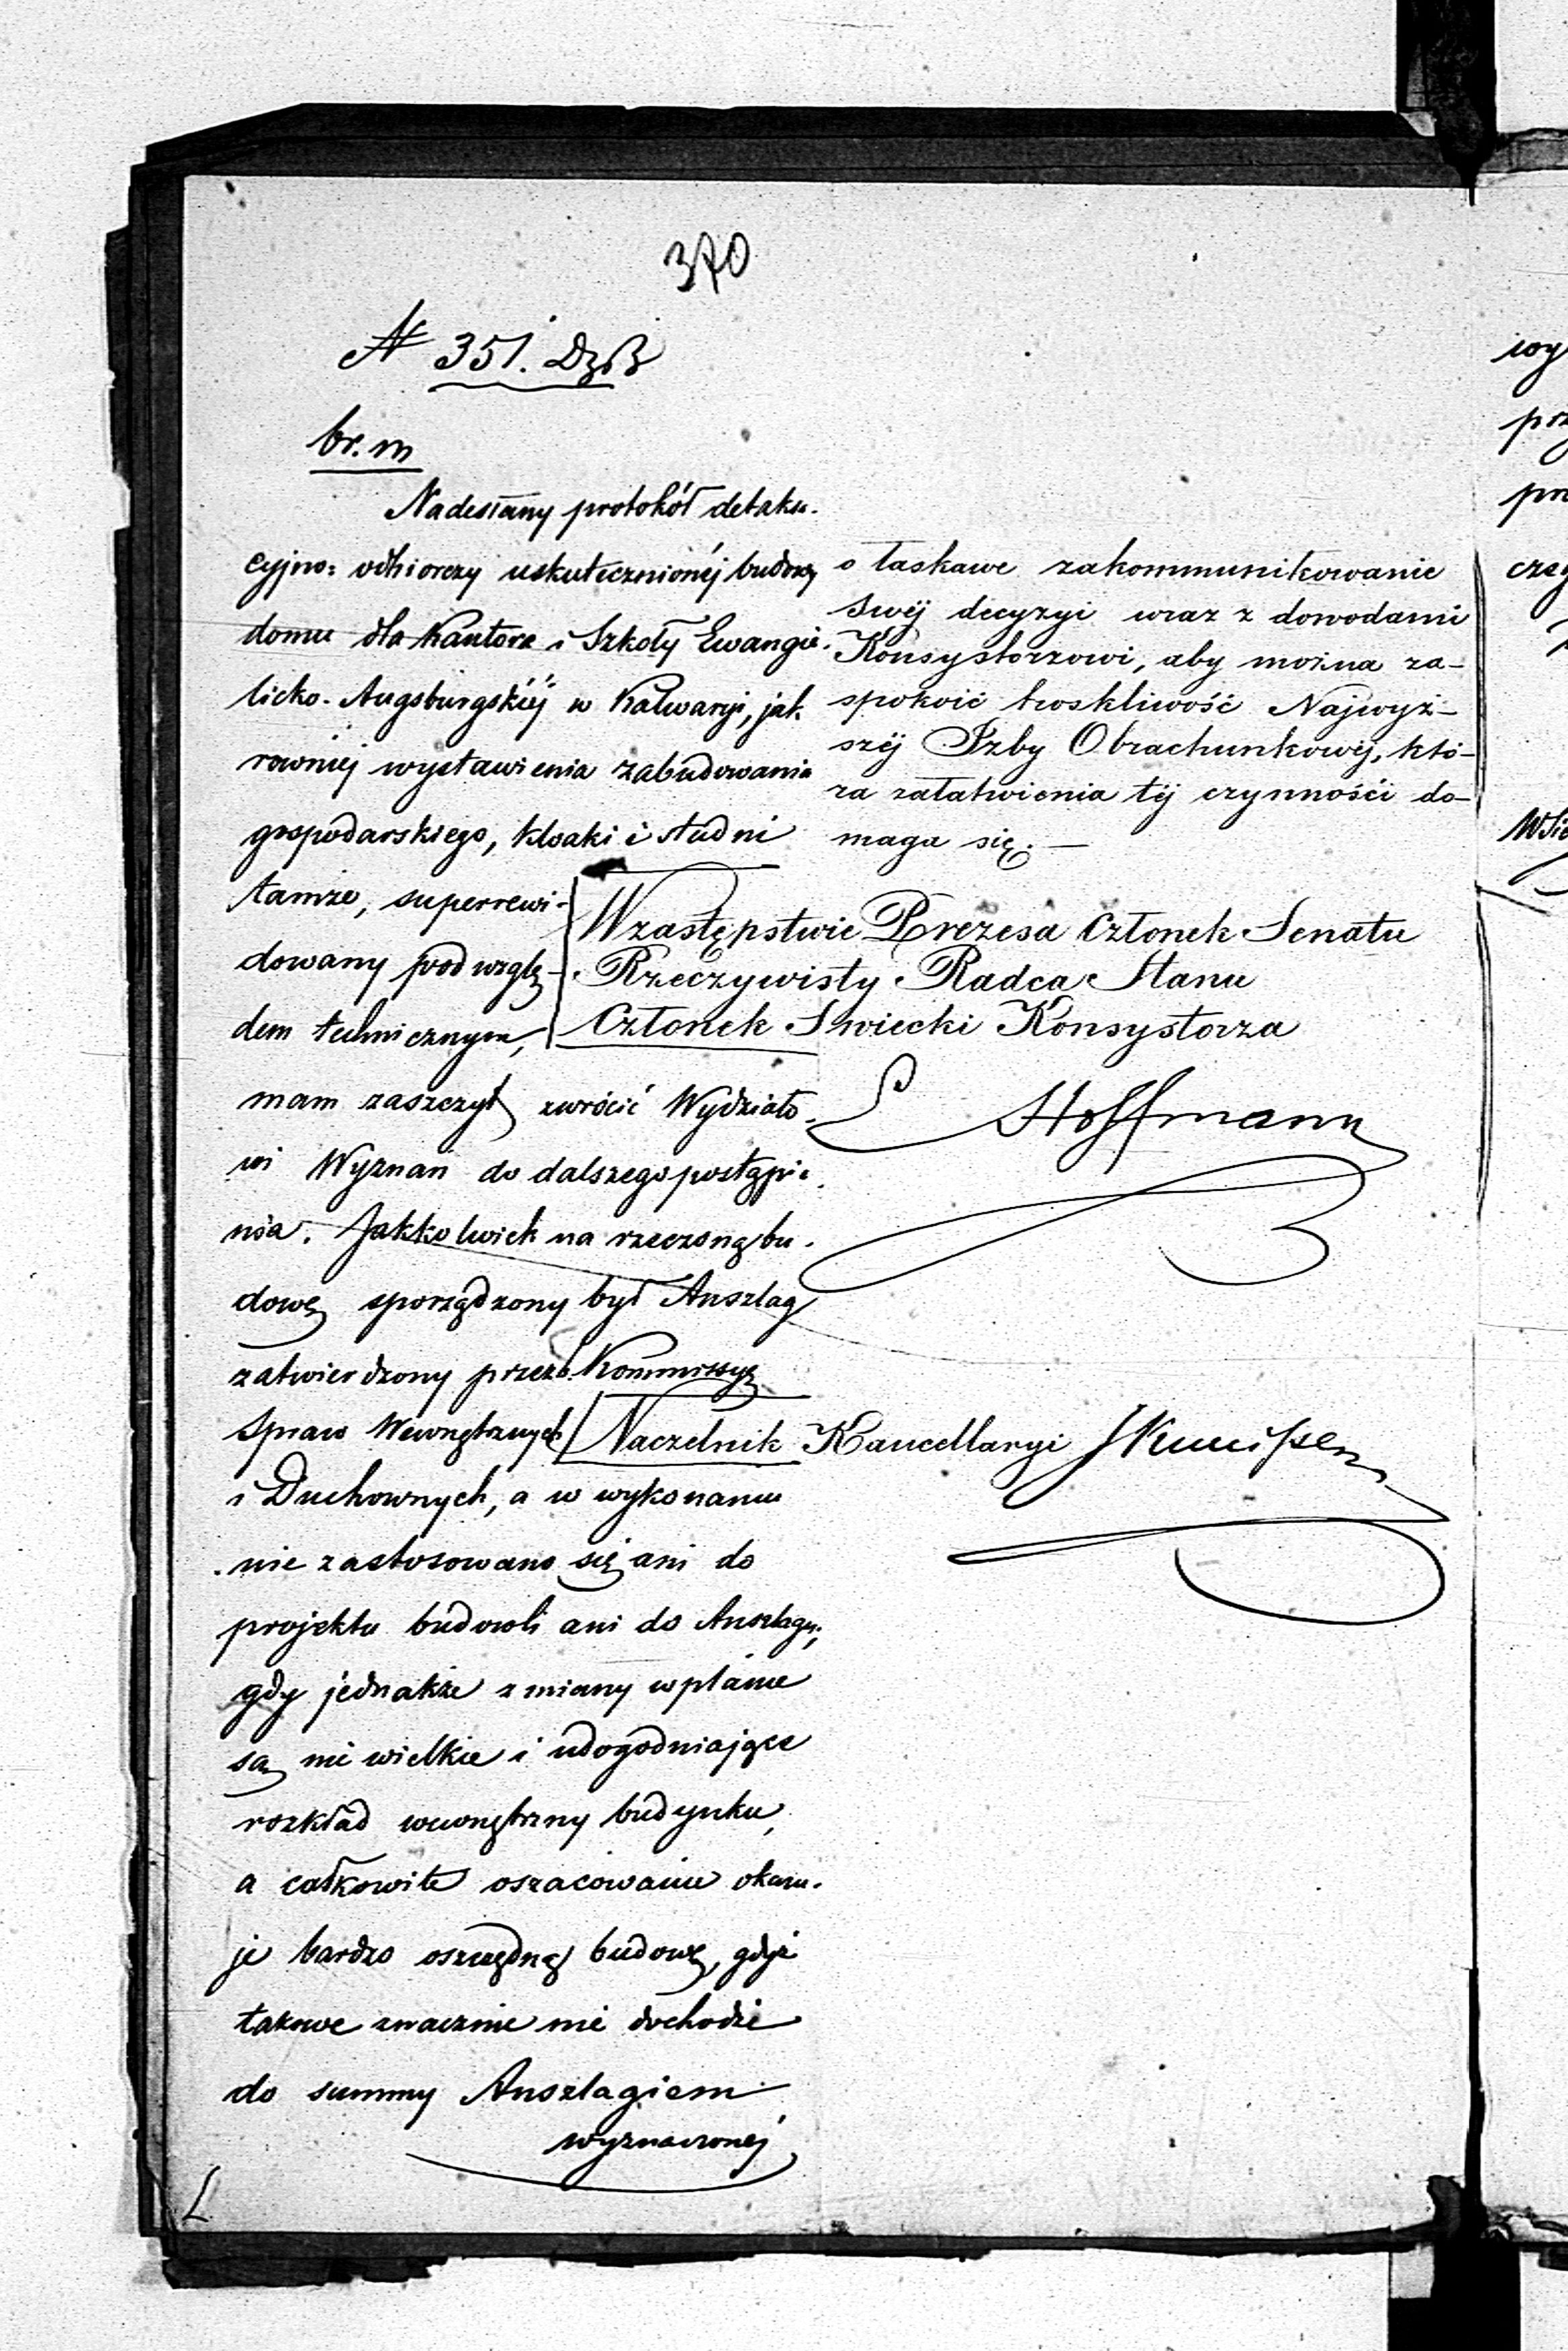 370
N 351. DzB
br. m
Nadesłany protokół detaksa-
cyjno: odbiorczy uskutecznionéj budowy
domu dla Kantora i Szkoły Ewangie-
licko-Augsburgskiéj w Kalwaryi, jak
rowniéj wystawienia zabudowania
gospodarskiego, kloaki i studni
tamże, superrewi-
dowany pod wzglę-
dem technicznym,
mam zaszczyt zwrócić Wydziało-
wi Wyznań do dalszego postąpie-
nia. Jakkolwiek na rzeczoną bu-
dowę sporządzony był Anszlag
zatwierdzony przez b. Kommissyę
Spraw Wewnętrznych
i Duchownych, a w wykonaniu
nie zastosowano się ani do
projektu budowli ani do Anszlagu;
gdy jednakże zmiany w planie
są nie wielkie i udogodniające
rozkład wewnętrzny budynku,
a całkowite oszacowanie okazu-
je bardzo oszczędną budowę, gdyż
takowe znacznie nie dochodzi
do summy Anszlagiem
wyznaczonéj
o łaskawe zakommunikowanie
swéj decyzyi wraz z dowodami
Konsystorzowi, aby można za-
spokoić troskliwość Najwyż-
széj Izby Obrachunkowéj, któ-
ra załatwienia téj czynności do-
maga się. —
W zastępstwie Prezesa Członek Senatu
Rzeczywisty Radca Stanu
Członek Swiecki Konsystorza
Hoffmann
Naczelnik Kancellaryi